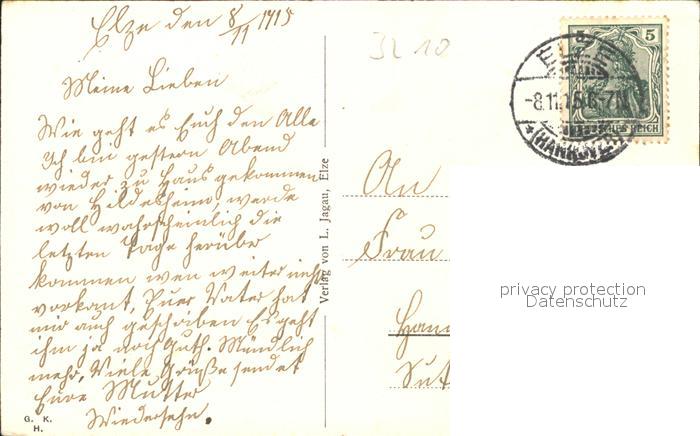 Elze den 8/11 1915
Meine Lieben
Wie geht es Euch den Alle
Ich bin gestern Abend
wieder zu Haus gekommen
von Hildesheim, werde
woll wahrscheinlich die
letzten Tage herüber
kommen wen weiter nichts
vorkomt, Euer Vater hat
mir auch geschrieben Es geht
ihm ja noch Guth. Mündlich
mehr, Viele Grüße sendet
Eure Mutter
Wiedersehn.
G. K.
H.
Verlag von L. Jagau, Elze
3210
5 5
REICH
-8.11.15.6-7N
(HANNOVER)
An
Frau
privacy protection
Datenschutz